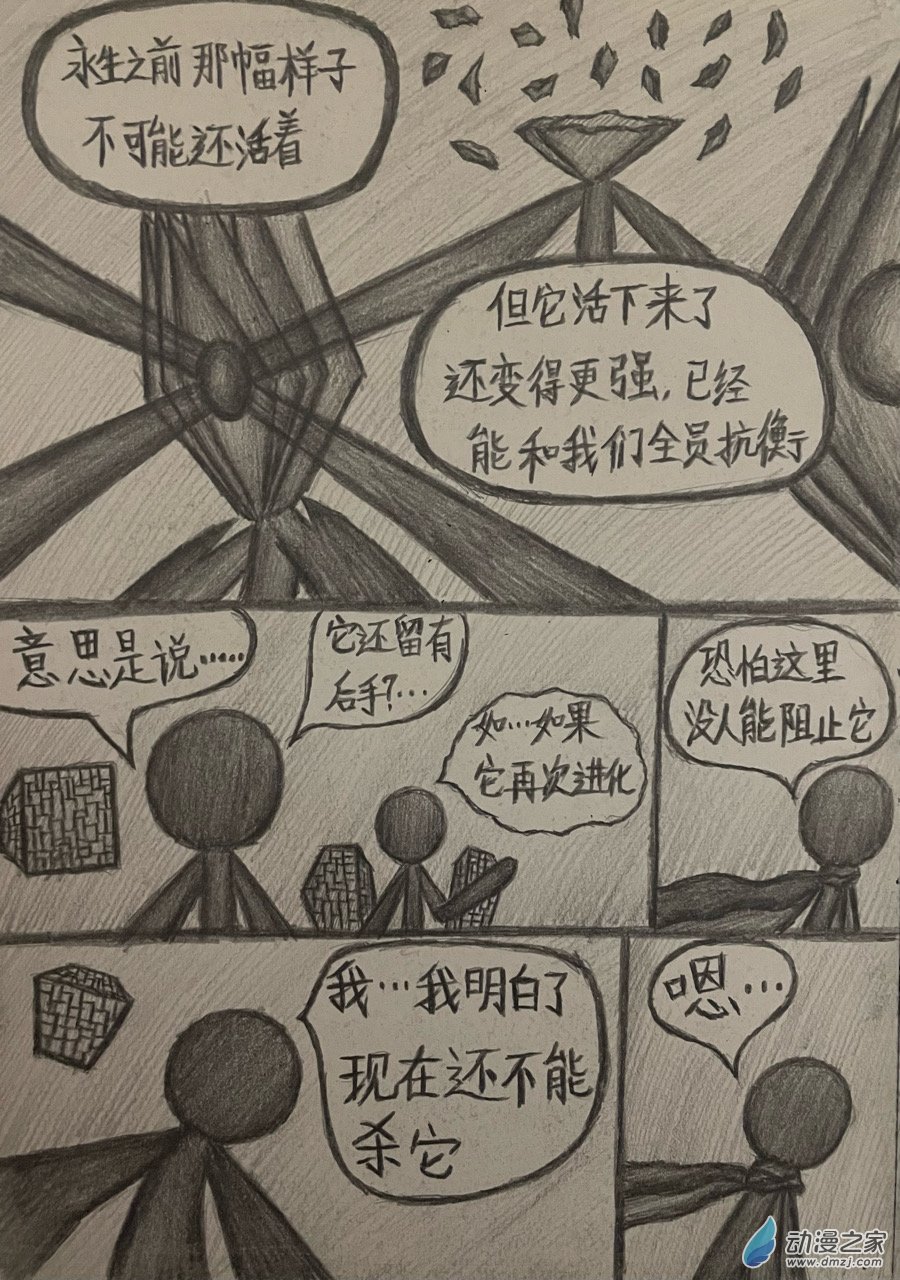 永生之前那幅样子
不可能还活着
但它活下来了
还变得更强，已经
能和我们全员抗衡
意思是说……
它还留有
后手？…
如…如果
它再次进化
恐怕这里
没人能阻止它
我…我明白了
现在还不能
杀它
嗯…
动漫之家
www.dmzj.com